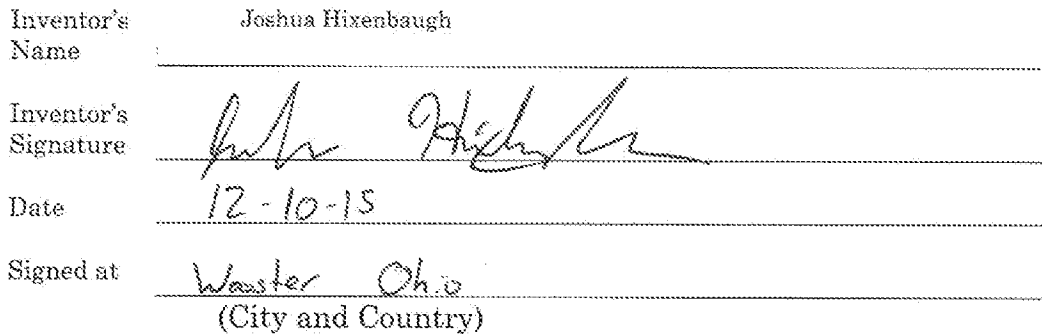 Inventor's Name Joshua Hixenbaugh
Inventor's Signature
Date 12-10-15
Signed at Wooster Ohio
(City and Country)